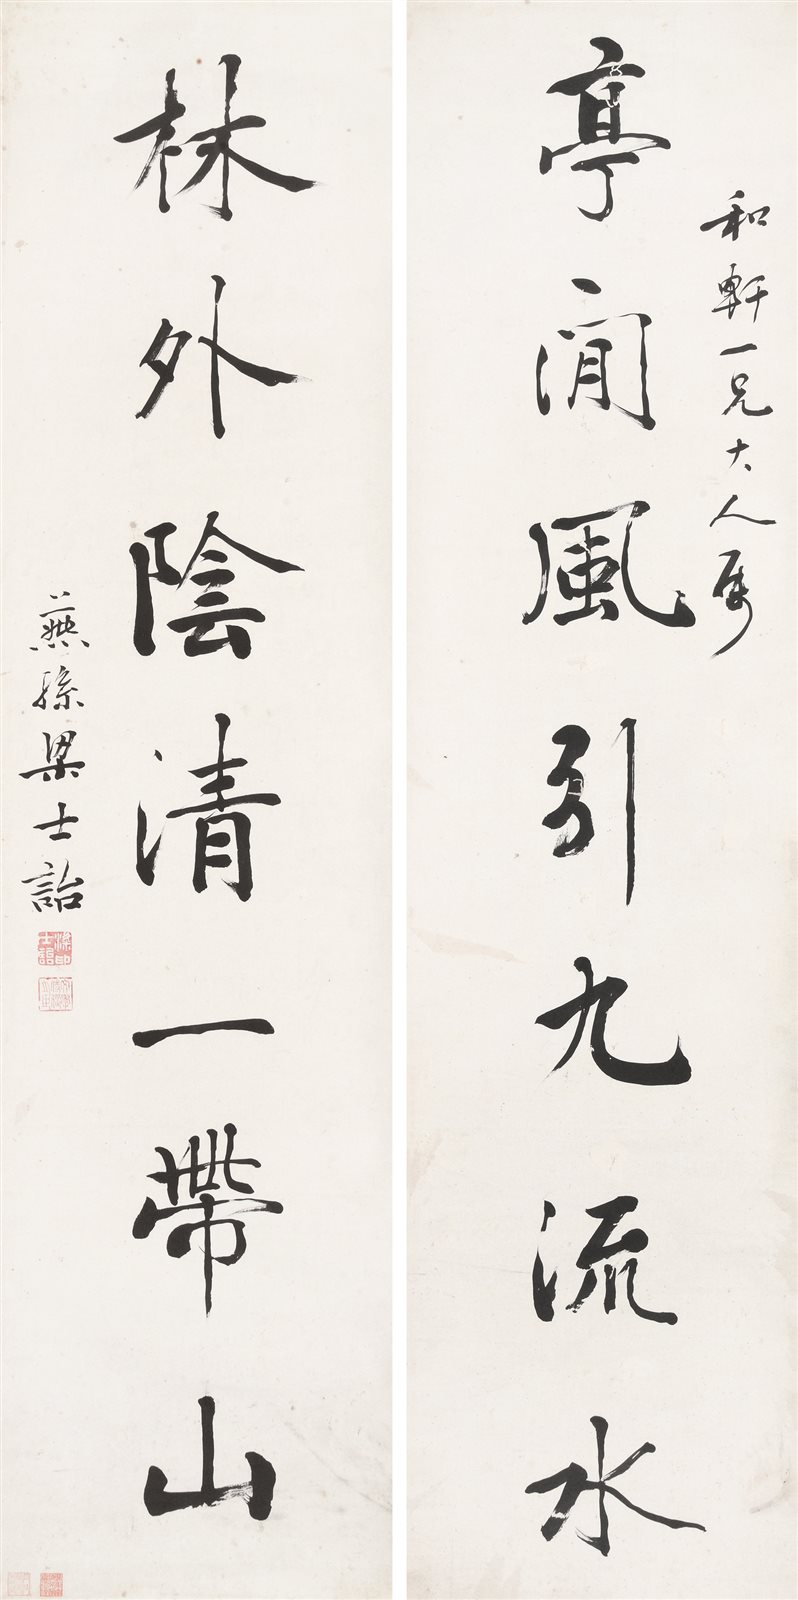 和軒一兄大人屬
亭間風引九流水
林外陰清一帶山
燕孫梁士詒